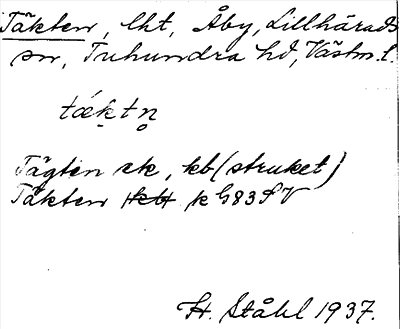 Täkten, lht, Åby, Lillhärads
sn, Tuhundra hd, Västm. l.
tǽktn̥
Tägten ek, kb (struket)
Täkten k G83SV
H. Ståhl 1937.